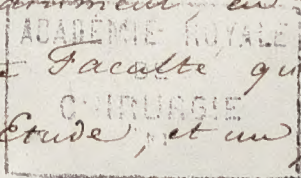 en
ACADÉMIE ROYALE
Faculte qu
CHIRURGIE
Etude, et un